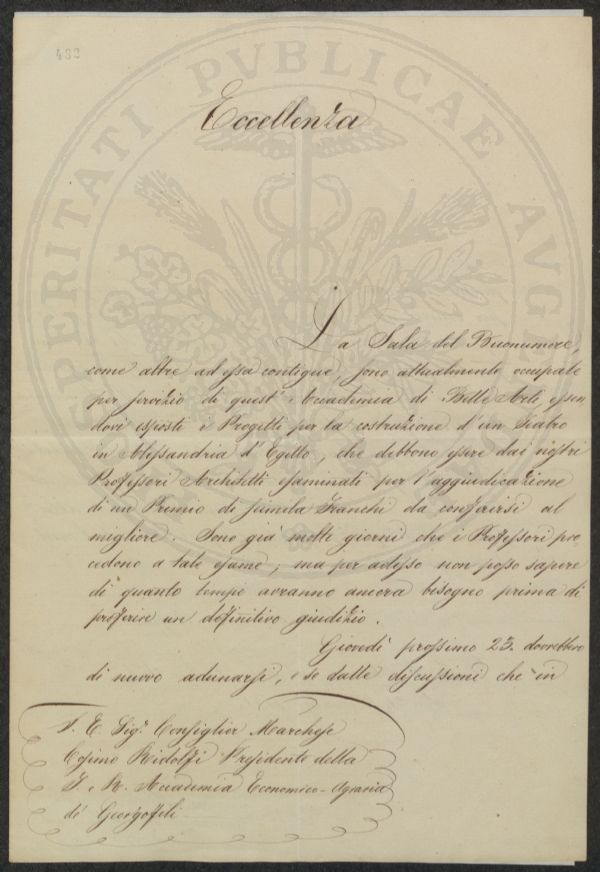 483
Eccellenza
La Sala del Buonumore,
come altre ad essa contigue, sono attualmente occupate
per servizio di quest' Accademia di Belle Arti, essen
dovi esposti i Progetti per la costruzione d'un Teatro
in Alessandria d'Egitto, che debbono essere dai nostri
Professori Architetti esaminati per l'aggiudicazione
di un Premio di seimila Franchi da conferirsi al
migliore. Sono già molte giorni che i Professori pro-
cedono a tale esame, ma per adesso non posso sapere
di quanto tempo avranno ancora bisogno prima di
proferire un definitivo giudizio.
Giovedì prossimo 23. dovrebbero
di nuovo adunarsi, e se dalle discussioni che in
S. E. Sigr. Consiglier Marchese
Cosimo Ridolfi Presidente della
I. e R. Accademia Economico-Agraria
di Georgofili
PROSPERITATI PVBLICAE AVGENDAE